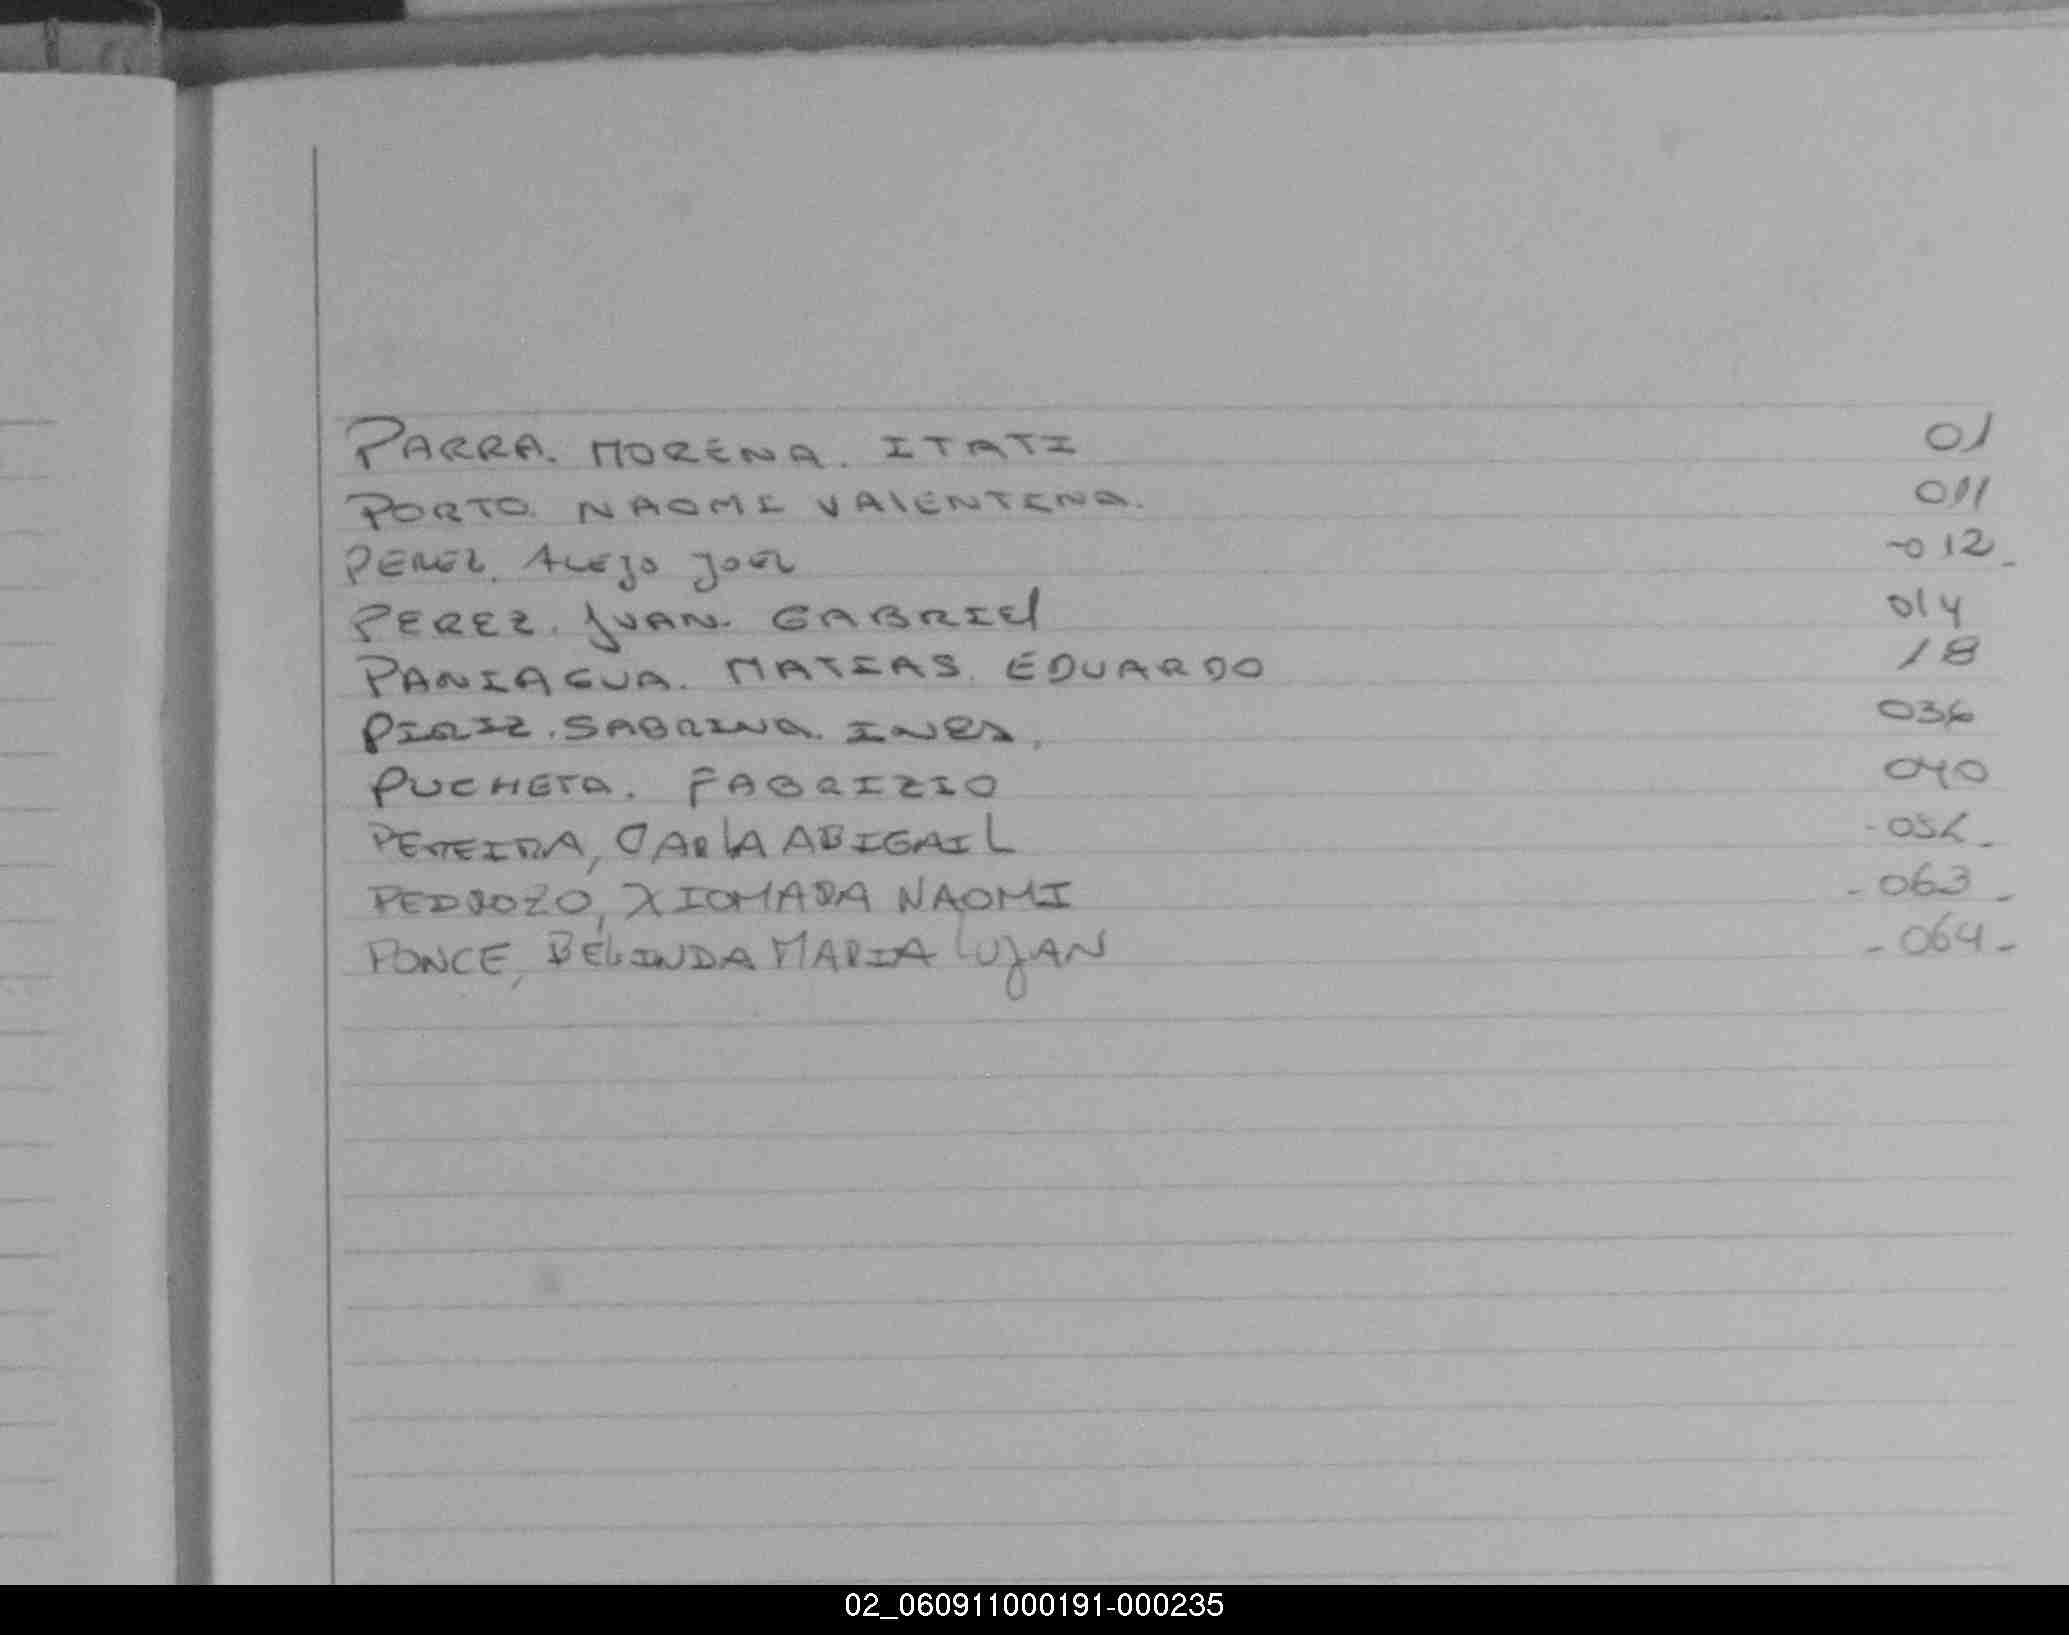 PARRA. MORENA. ITATI 01
PORTO. NAOMI VALENTINA. 011
PEREZ. ALEJO JOEL -012-
PEREZ. JUAN. GABRIEL 014
PANIAGUA. MATIAS. EDUARDO 18
PIRIZ. SABRINA. INES. 036
PUCHETA. FABRIZIO 040
PEREIRA, CARLA ABIGAIL
PEDROZO, XIOMARA NAOMI -063-
PONCE, BELINDA MARIA LUJAN -064-
02_060911000191-000235